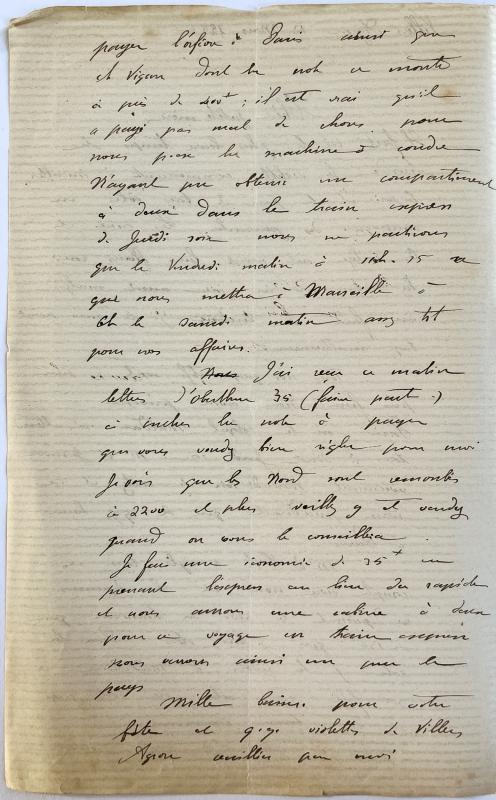 payer l'orfèvre. Paris ainsi que
et Vigan dont la note se monte
à près de 400f ; il est vrai qu'il
a payé pas mal de choses pour
nous pr la machine à coudre
N'ayant pu obtenir un compartiment
à deux dans le train express
de Jeudi soir nous ne partirons
que le Vendredi matin à 11h. 15 ce
que nous mettra à Marseille à
6h le samedi matin assez tôt
pour nos affaires.
J'ai reçu ce matin
lettres d'Oberthur 35 (faire part.)
ci inclus la note à payer
que vous voudrez bien régler pour moi
Je vois que les Nord sont remontés
à 2200 et plus veillez y et vendez
quand on vous le conseillera.
Je fais une économie de 35f en
prenant l'express au lieu du rapide
et nous aurons une cabine à deux
pour ce voyage en train express
nous verrons ainsi un peu le
pays
Mille baisers pour votre
fête et qq violettes de Villers
veuillez par moi